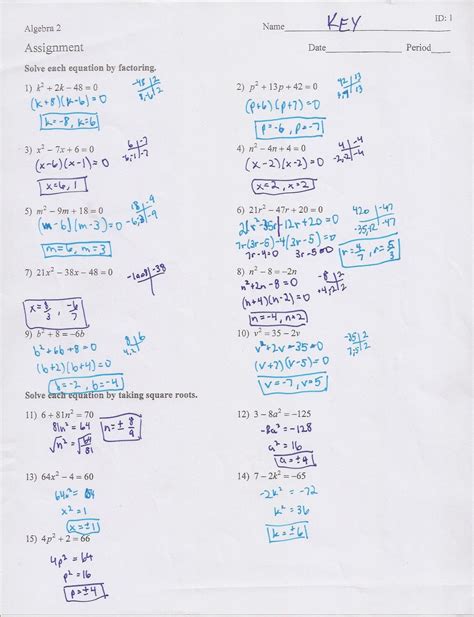 Algebra 2
Name KEY
ID: 1
Assignment
Date Period
Solve each equation by factoring.
1) k² + 2k − 48 = 0
-48 | 2
8,-6 | 2
(k+8)(k-6)=0
k=-8, k=6
2) p² + 13p + 42 = 0
42 | 13
(p+6)(p+7)=0
p=-6, p=-7
3) x² − 7x + 6 = 0
6 | -7
-6,-1 | -7
(x-6)(x-1)=0
x=6, 1
4) n² − 4n + 4 = 0
4 | -4
-2,-2 | -4
(x-2)(x-2)=0
x=2, x=2
5) m² − 9m + 18 = 0
18 | -9
-6,-3 | -9
(m-6)(m-3)=0
m=6, m=3
6) 21r² − 47r + 20 = 0
420 | -47
-35,-12 | -47
21r²-35r-12r+20=0
7r(3r-5)-4(3r-5)=0
7r-4=0 3r-5=0
r=4/7, r=5/3
7) 21x² − 38x − 48 = 0
-1008 | -38
x=8/3, -6/7
8) n² − 8 = −2n
-8 | 2
+4,-2 | 2
n²+2n-8=0
(n+4)(n-2)=0
n=-4, n=2
9) b² + 8 = −6b
8 | 6
4,2 |
b²+6b+8=0
(b+2)(b+4)=0
b=-2, b=-4
10) v² = 35 − 2v
-35 | 2
7,-5 | 2
v²+2v-35=0
(v+7)(v-5)=0
v=-7, v=5
Solve each equation by taking square roots.
11) 6 + 81n² = 70
81n² = 64
√n² = √64/81
n=± 8/9
12) 3 − 8a² = −125
-8a² = -128
a² = 16
a=±4
13) 64x² − 4 = 60
64x² = 64
x² = 1
x=±1
14) 7 − 2k² = −65
-2k² = -72
k² = 36
k=±6
15) 4p² + 2 = 66
4p² = 64
p² = 16
p=±4